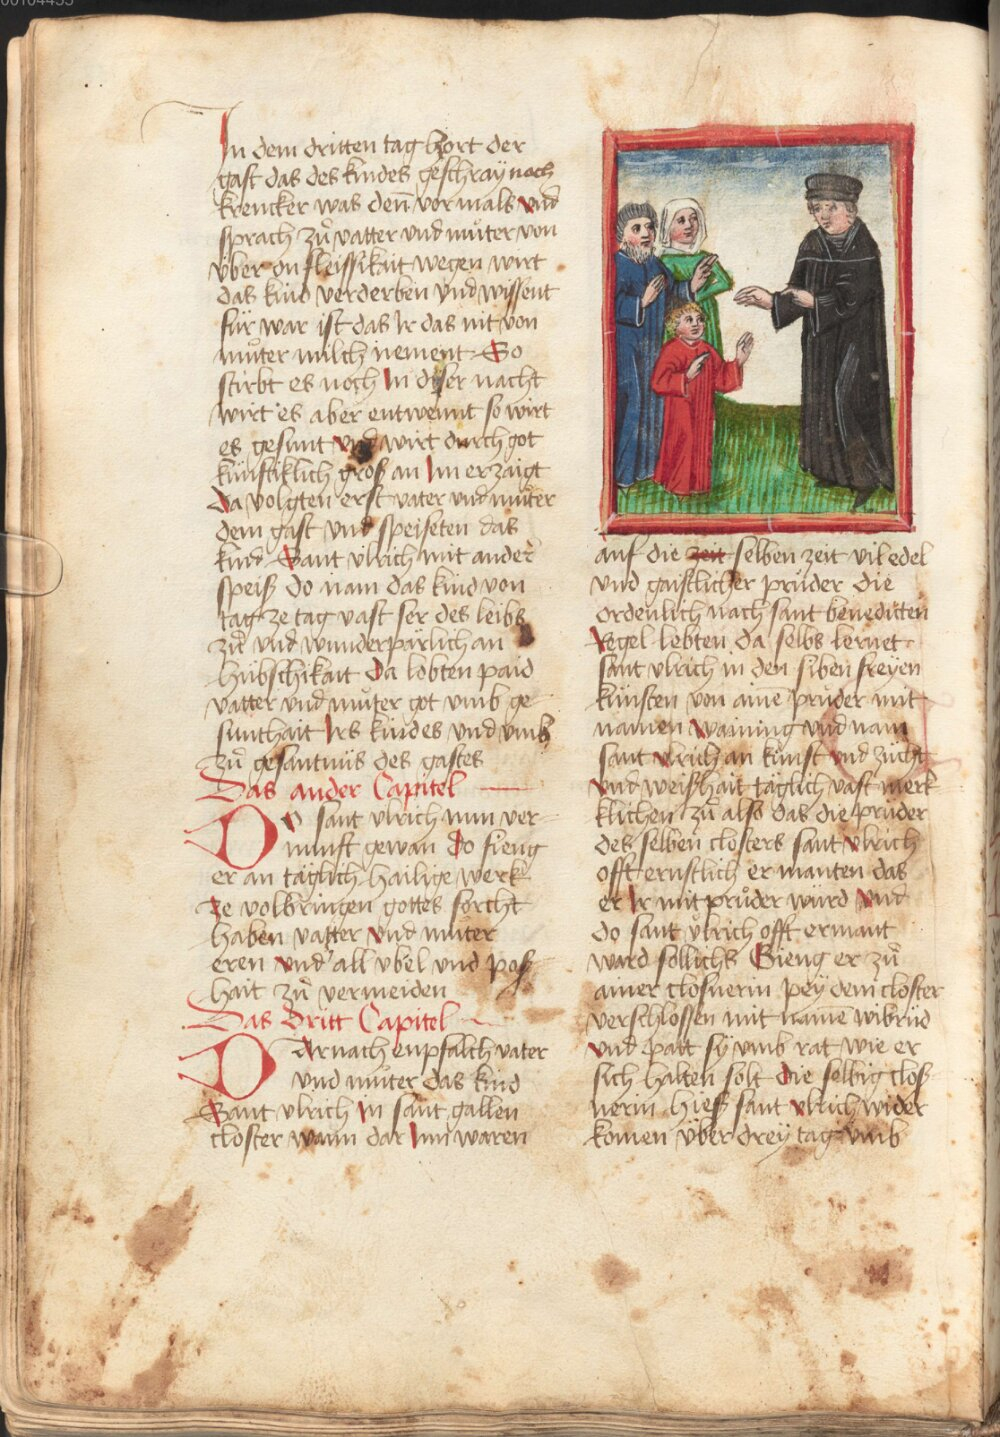 In dem dritten tag hort der
gast das des kindes geschray noch
krencker was den̄ vormals vnd
sprach zů vatter vnd můter von
v̈ber on fleissikait wegen wirt
das kind verderben vnd wissent
fúr war ist das Ir das nit von
můter milch nement So
stirbt es noch In diser nacht
wirt es aber entwennt so wirt
es gesunt vnd wirt durch got
kúnftiklich gros an Im erzaigt
Da volgten erst vater vnd můter
dem gast vnd speiseten das
kind Sant vlrich mit ander
speiß do nam das kind von
tag ze tag vast ser des leibs
zů vnd wunderpärlich an
hübschikait Da lobten paid
vatter vnd můter got vmb ge
sunthait Irs kindes vnd vmb
zů gesantnús des gastes
Das ander Capitel
Do sant vlrich nun ver
nunft gewan Do fieng
er an täglich hailige werk
ze volbringen gottes forcht
haben vatter vnd můter
eren vnd all v̈bel vnd poß
hait zů vermeiden
Das dritt Capitel
Darnach enpfalch vater
vnd můter das kind
Sant vlrich In sant gallen
closter wann dar Inn waren
auf die zeit selben zeit vil edel
vnd gaistlicher průder die
ordenlich nach sant benedicten
Regel lebten da selbs lernet
sant vlrich in den siben freyen
kúnsten von aime průder mit
namen waining vnd nam
sant vlrich an kunst vnd zucht
vnd weißhait täglich vast merk
klichen zů also das die průder
des selben closters sant vlrich
offt ernstlich ermanten das
er Ir mit průder wurd vnd
do sant vlrich offt ermant
ward sollichs Gieng er zů
ainer closnerin pey dem closter
verschlossen mit name wibrud
vnd patt sy vmb rat wie er
sich halten solt die selbig clos
nerin hieß sant vlrich wider
komen v̈ber drey tag vmb